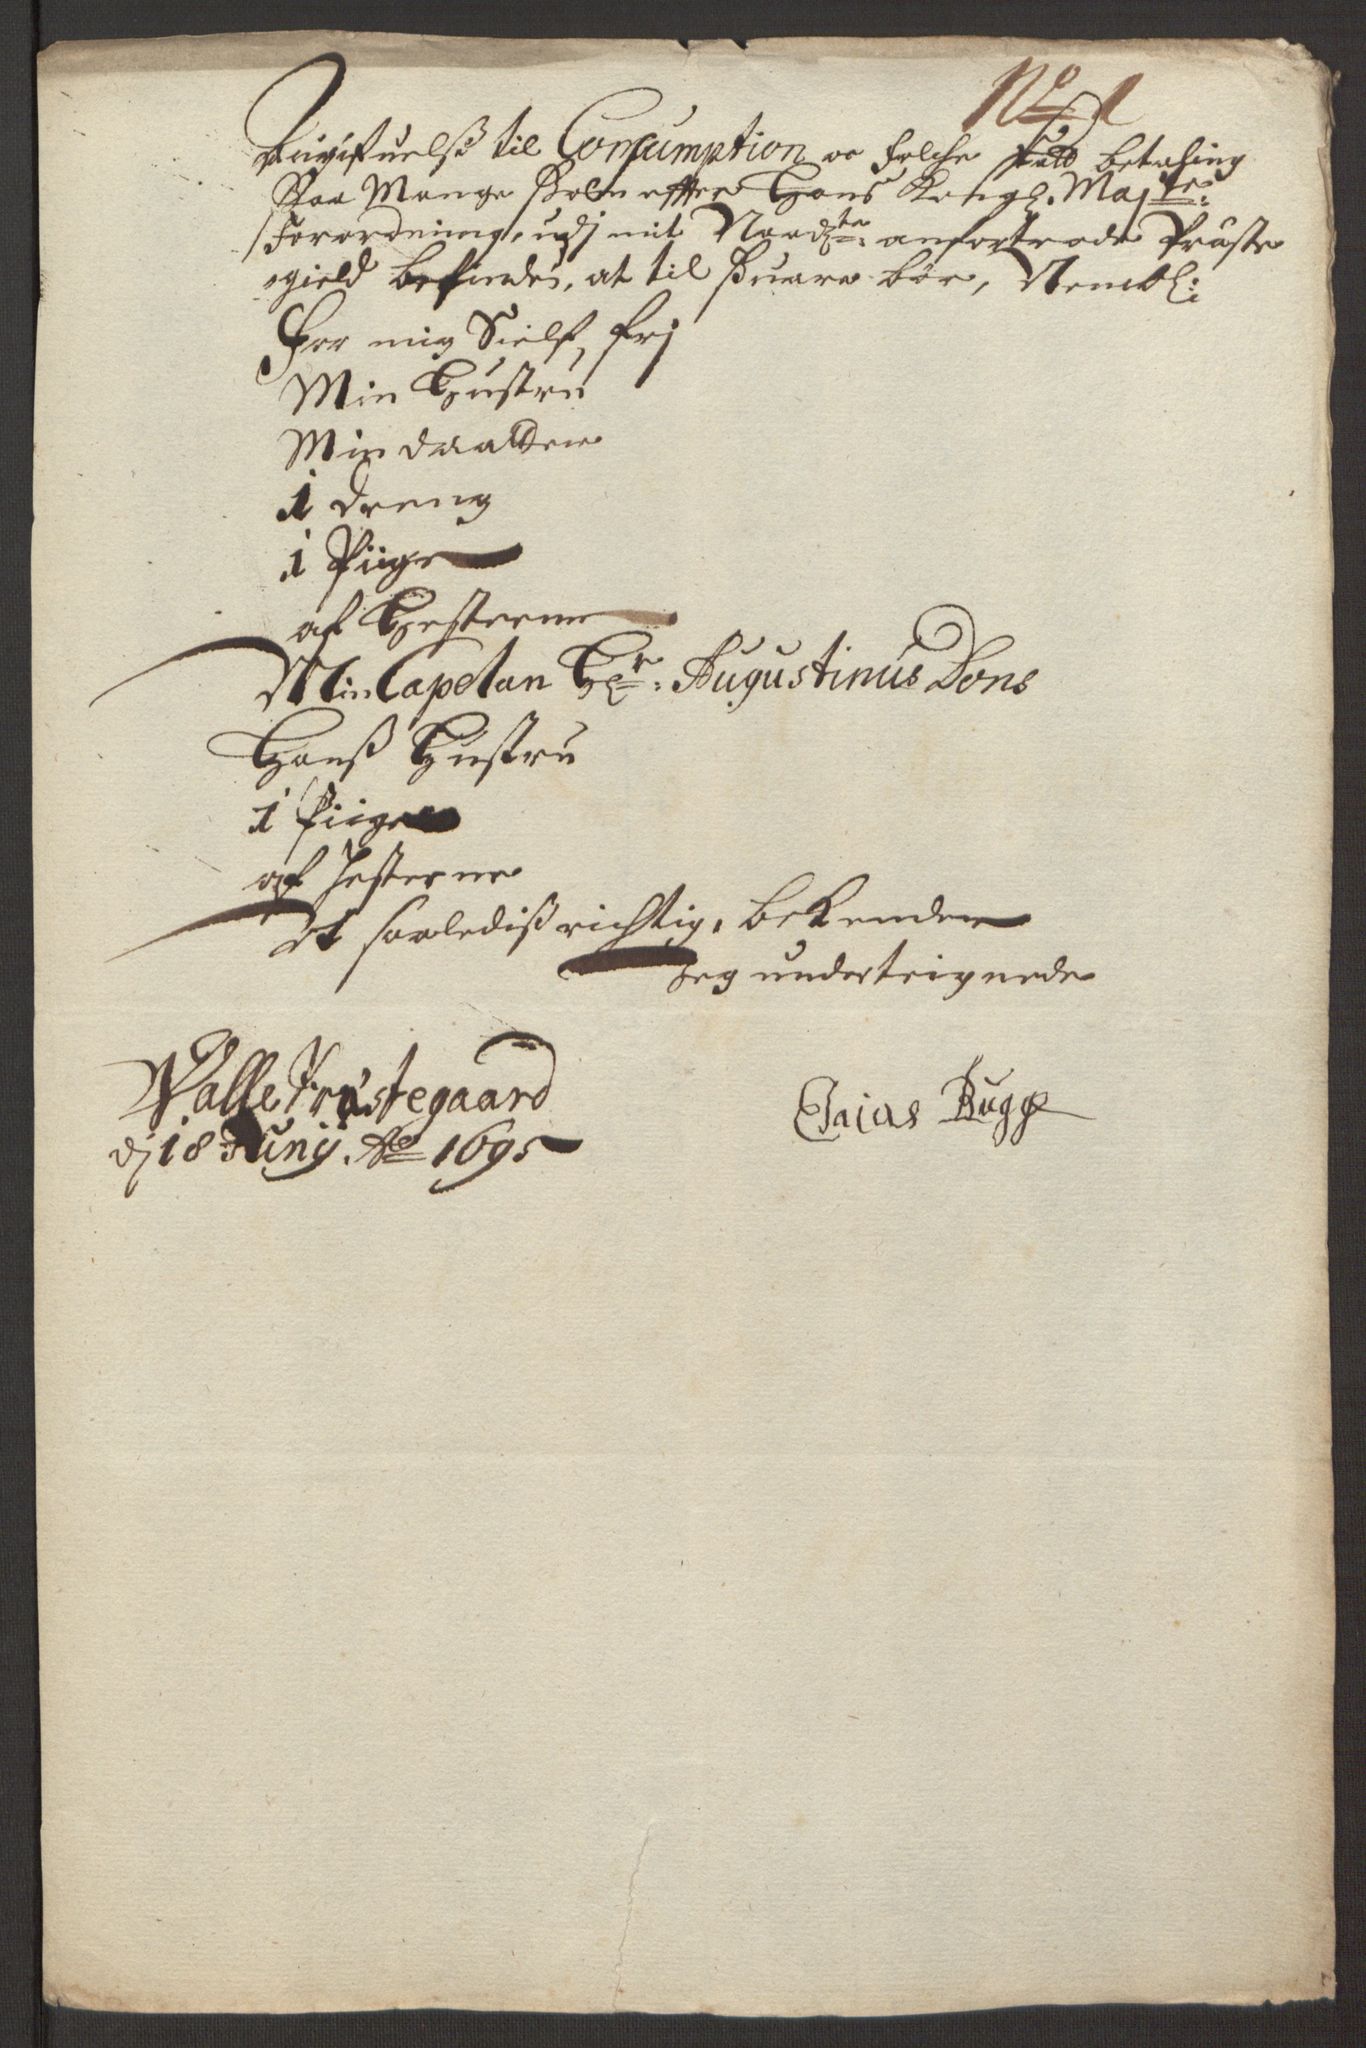 No 1
Angifuelsß til Consumption oc Folche schatt betaling
Saa Mange som effter Hans Kongl. Mayts:
Forordning, udj mit Naadste: anfortrode Præste
gield befindes, at til suare bør, Nembl:
For mig Sielf, frj
Min Hustru
Min daatter
1 dreng
1 Piige
af Hesterne
Min Capelan Hr: Augustinus Dons
Hanß Hustru
1 Piige
af Hesterne
At saaledis richtig, beKiender
Jeg underteignede
Walle Præstegaard
dj 18 Junij. Ao 1695
Esaias Bugge